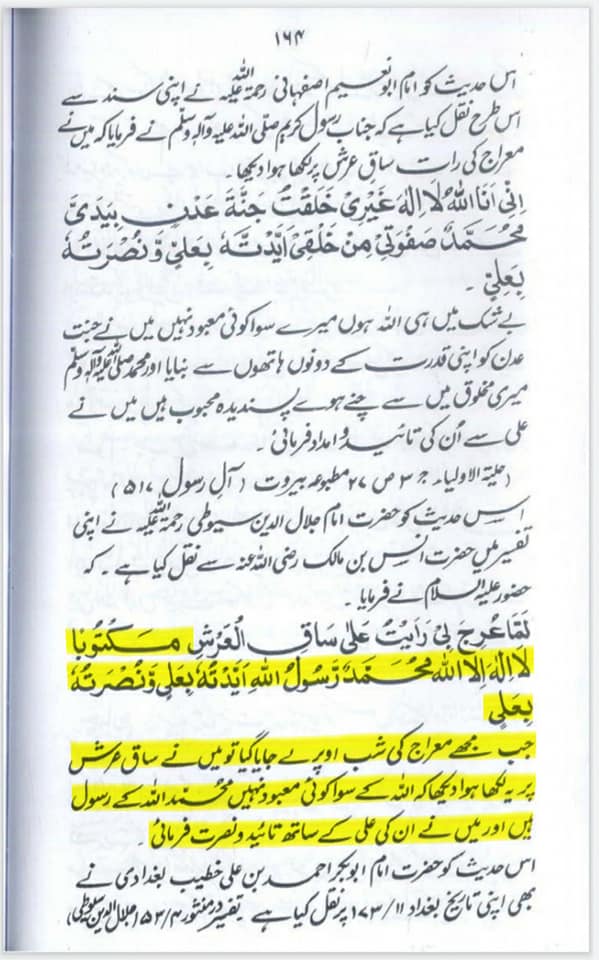 ۱۶۴
اس حدیث کو امام ابو نعیم اصفہانی رحمۃ اللہ علیہ نے اپنی سند سے
اس طرح نقل کیا ہے کہ جناب رسول کریم صلی اللہ علیہ وآلہ وسلم نے فرمایا کہ میں نے
معراج کی رات ساق عرش پر لکھا ہوا دیکھا۔
اِنِّیْ اَنَا اللهُ لَا اِلٰهَ غَیْرِیْ خَلَقْتُ جَنَّةَ عَدْنٍ بِیَدَیَّ
مُحَمَّدٌ صَفْوَتِیْ مِنْ خَلْقِیْ اَیَّدْتُّهٗ بِعَلِیٍّ وَّنُصَرْتُهٗ
بِعَلِیٍّ ۔
بے شک میں ہی اللہ ہوں میرے سوا کوئی معبود نہیں میں نے جنت
عدن کو اپنی قدرت کے دونوں ہاتھوں سے بنایا اور محمد صلی اللہ علیہ وآلہ وسلم
میری مخلوق میں سے چنے ہوے پسندیدہ محبوب ہیں میں نے
علی سے اُن کی تائید و امداد فرمائی ۔
(حلیۃ الاولیاء ج ۳ ص ۲۷ مطبوعہ بیروت (آل رسول ۵۱۷)
اس حدیث کو حضرت امام جلال الدین سیوطی رحمۃ اللہ علیہ نے اپنی
تفسیر میں حضرت انس بن مالک رضی اللہ عنہ سے نقل کیا ہے ۔ کہ
حضور علیہ السلام نے فرمایا ۔
لَمَّا عُرِجَ لِیْ رَاَیْتُ عَلٰی سَاقِ الْعَرْشِ مَکْتُوْبًا
لَا اِلٰهَ اِلَّا اللهُ مُحَمَّدٌ رَّسُوْلُ اللهِ اَیَّدْتُهٗ بِعَلِیٍّ وَّنُصَرْتُهٗ
بِعَلِیٍّ
جب مجھے معراج کی شب اوپر لے جایا گیا تو میں نے ساق عرش
پر یہ لکھا ہوا دیکھا کہ اللہ کے سوا کوئی معبود نہیں محمد اللہ کے رسول
ہیں اور میں نے ان کی علی کے ساتھ تائید و نصرت فرمائی ۔
اس حدیث کو حضرت امام ابوبکر احمد بن علی خطیب بغدادی نے
بھی اپنی تاریخ بغداد ۱۷۳/۱۱ پر نقل کیا ہے تفسیر در منثور ۱۵۳/۴ (جلال الدین سیوطی)